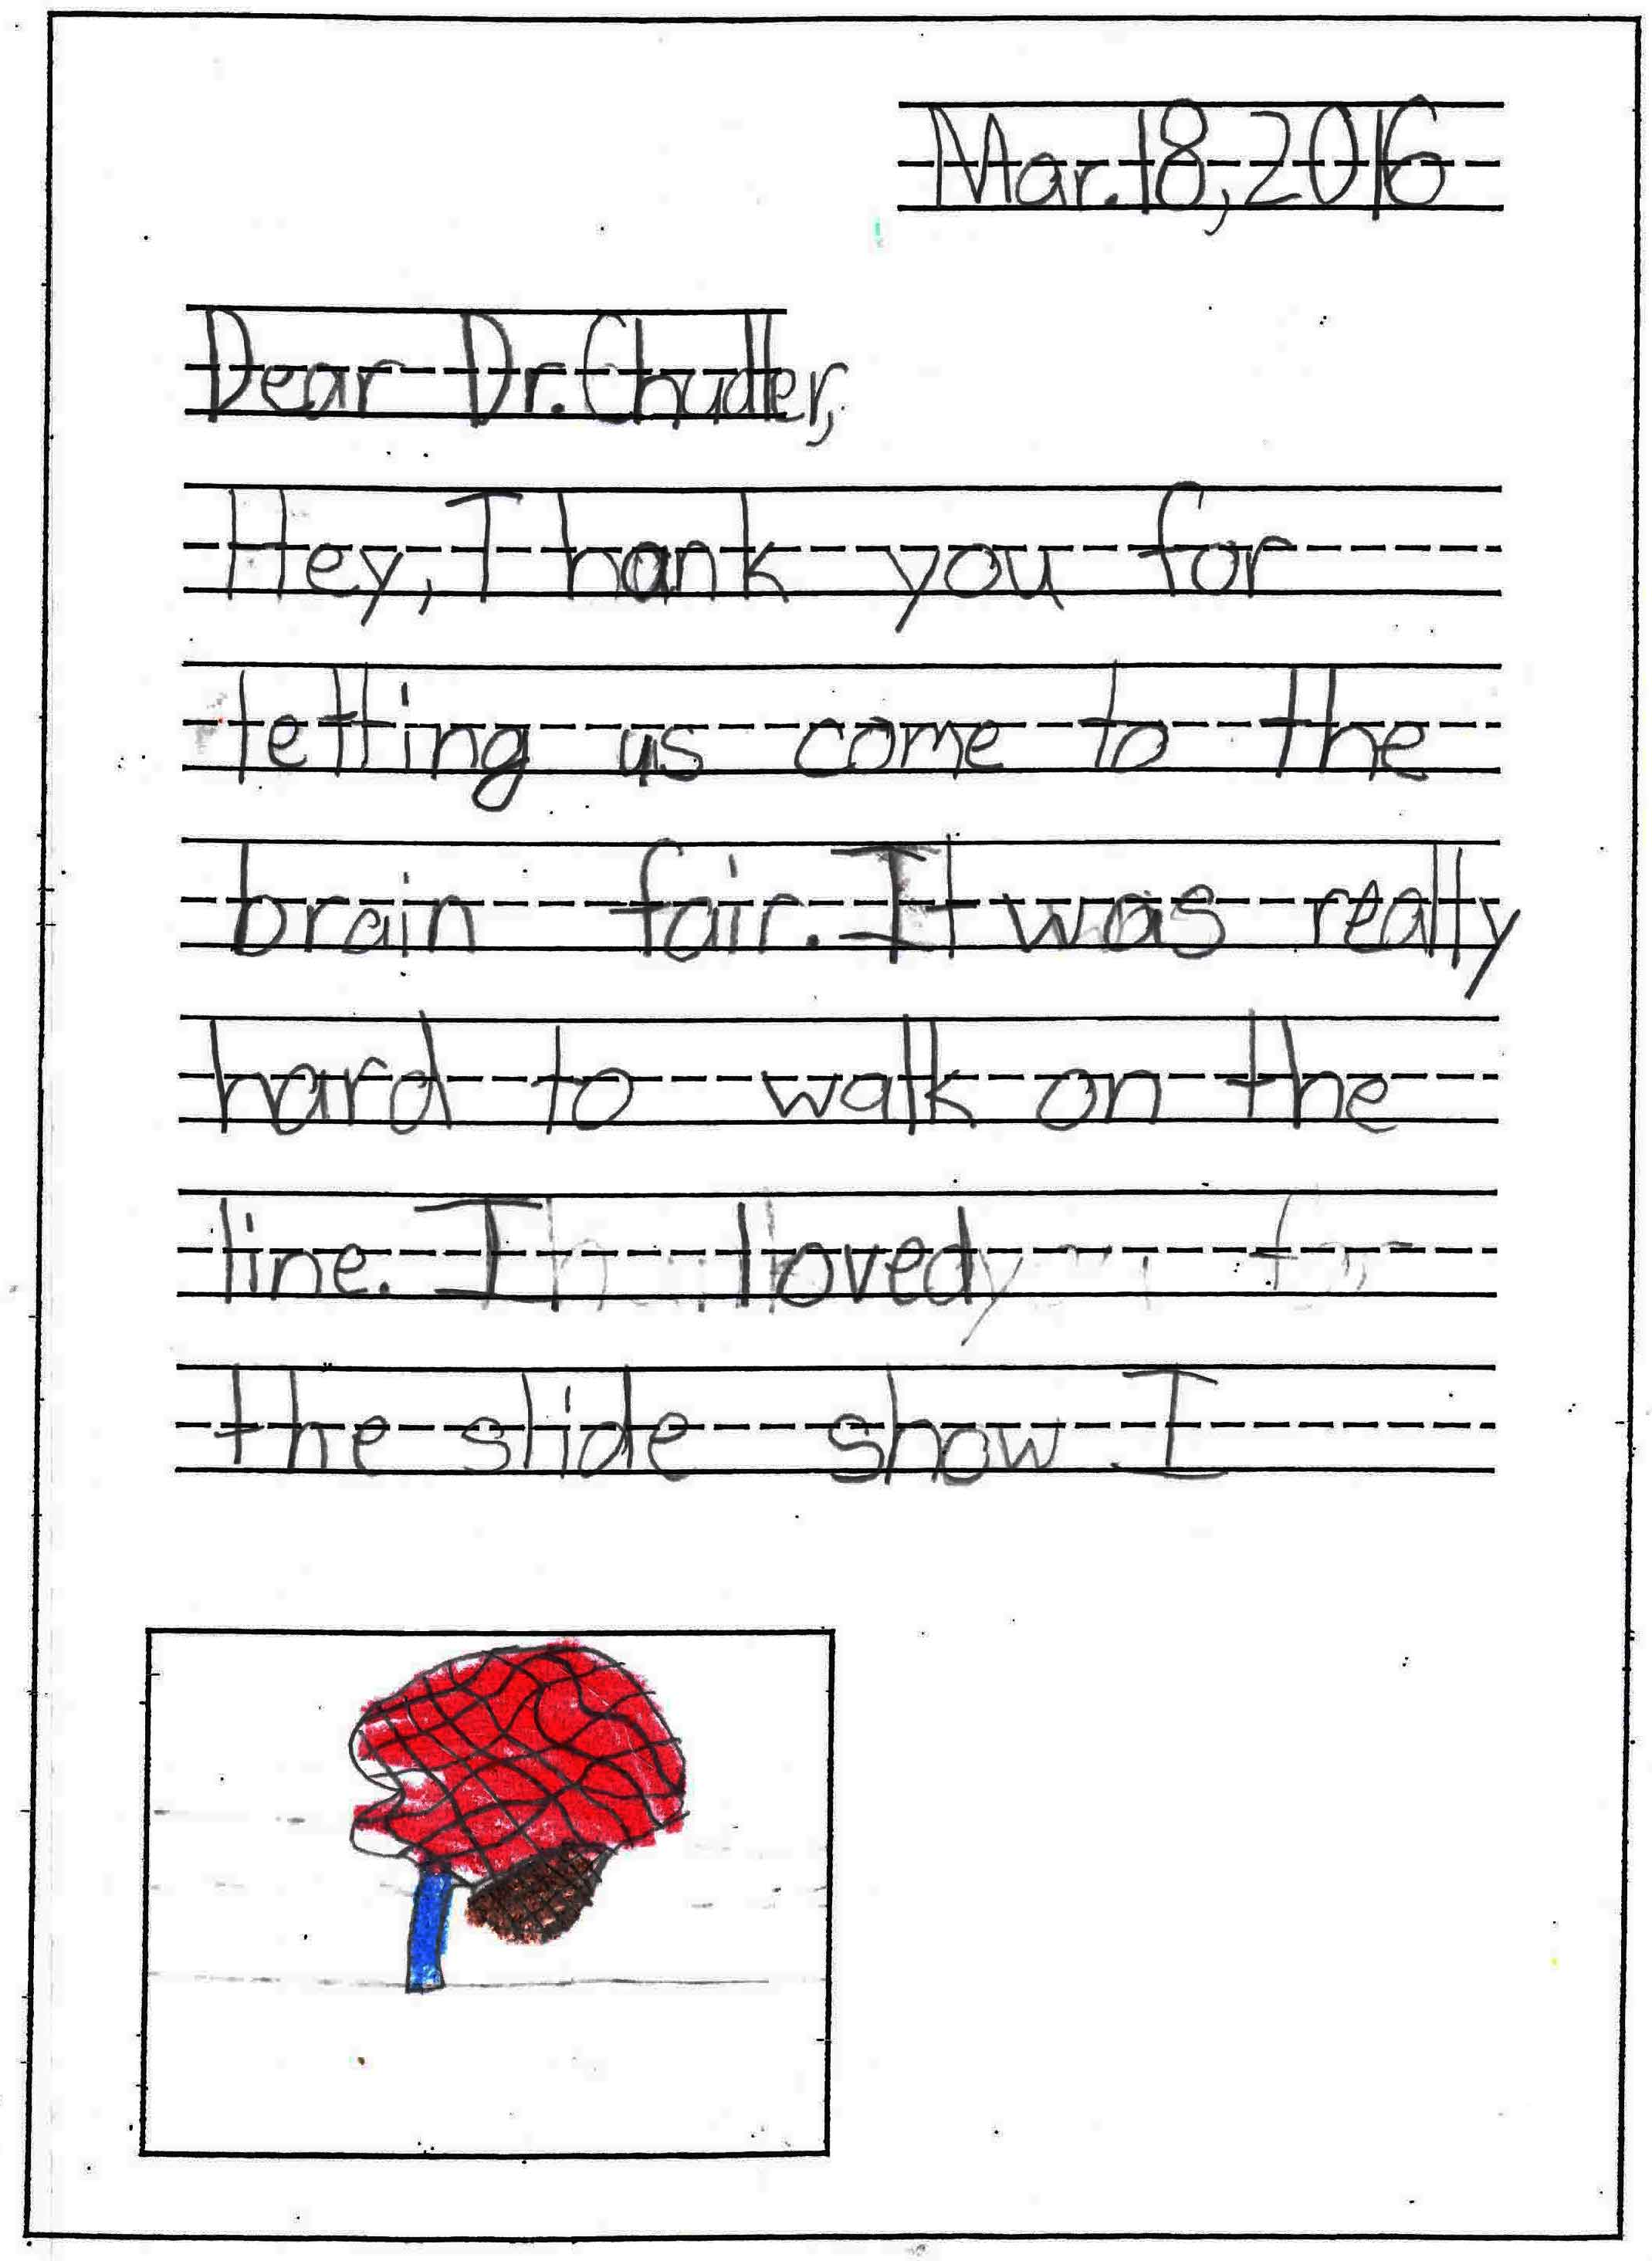 Mar. 18, 2016
Dear Dr. Chudler,
Hey, Thank you for
letting us come to the
brain fair. It was really
hard to walk on the
line. I loved
the slide show I